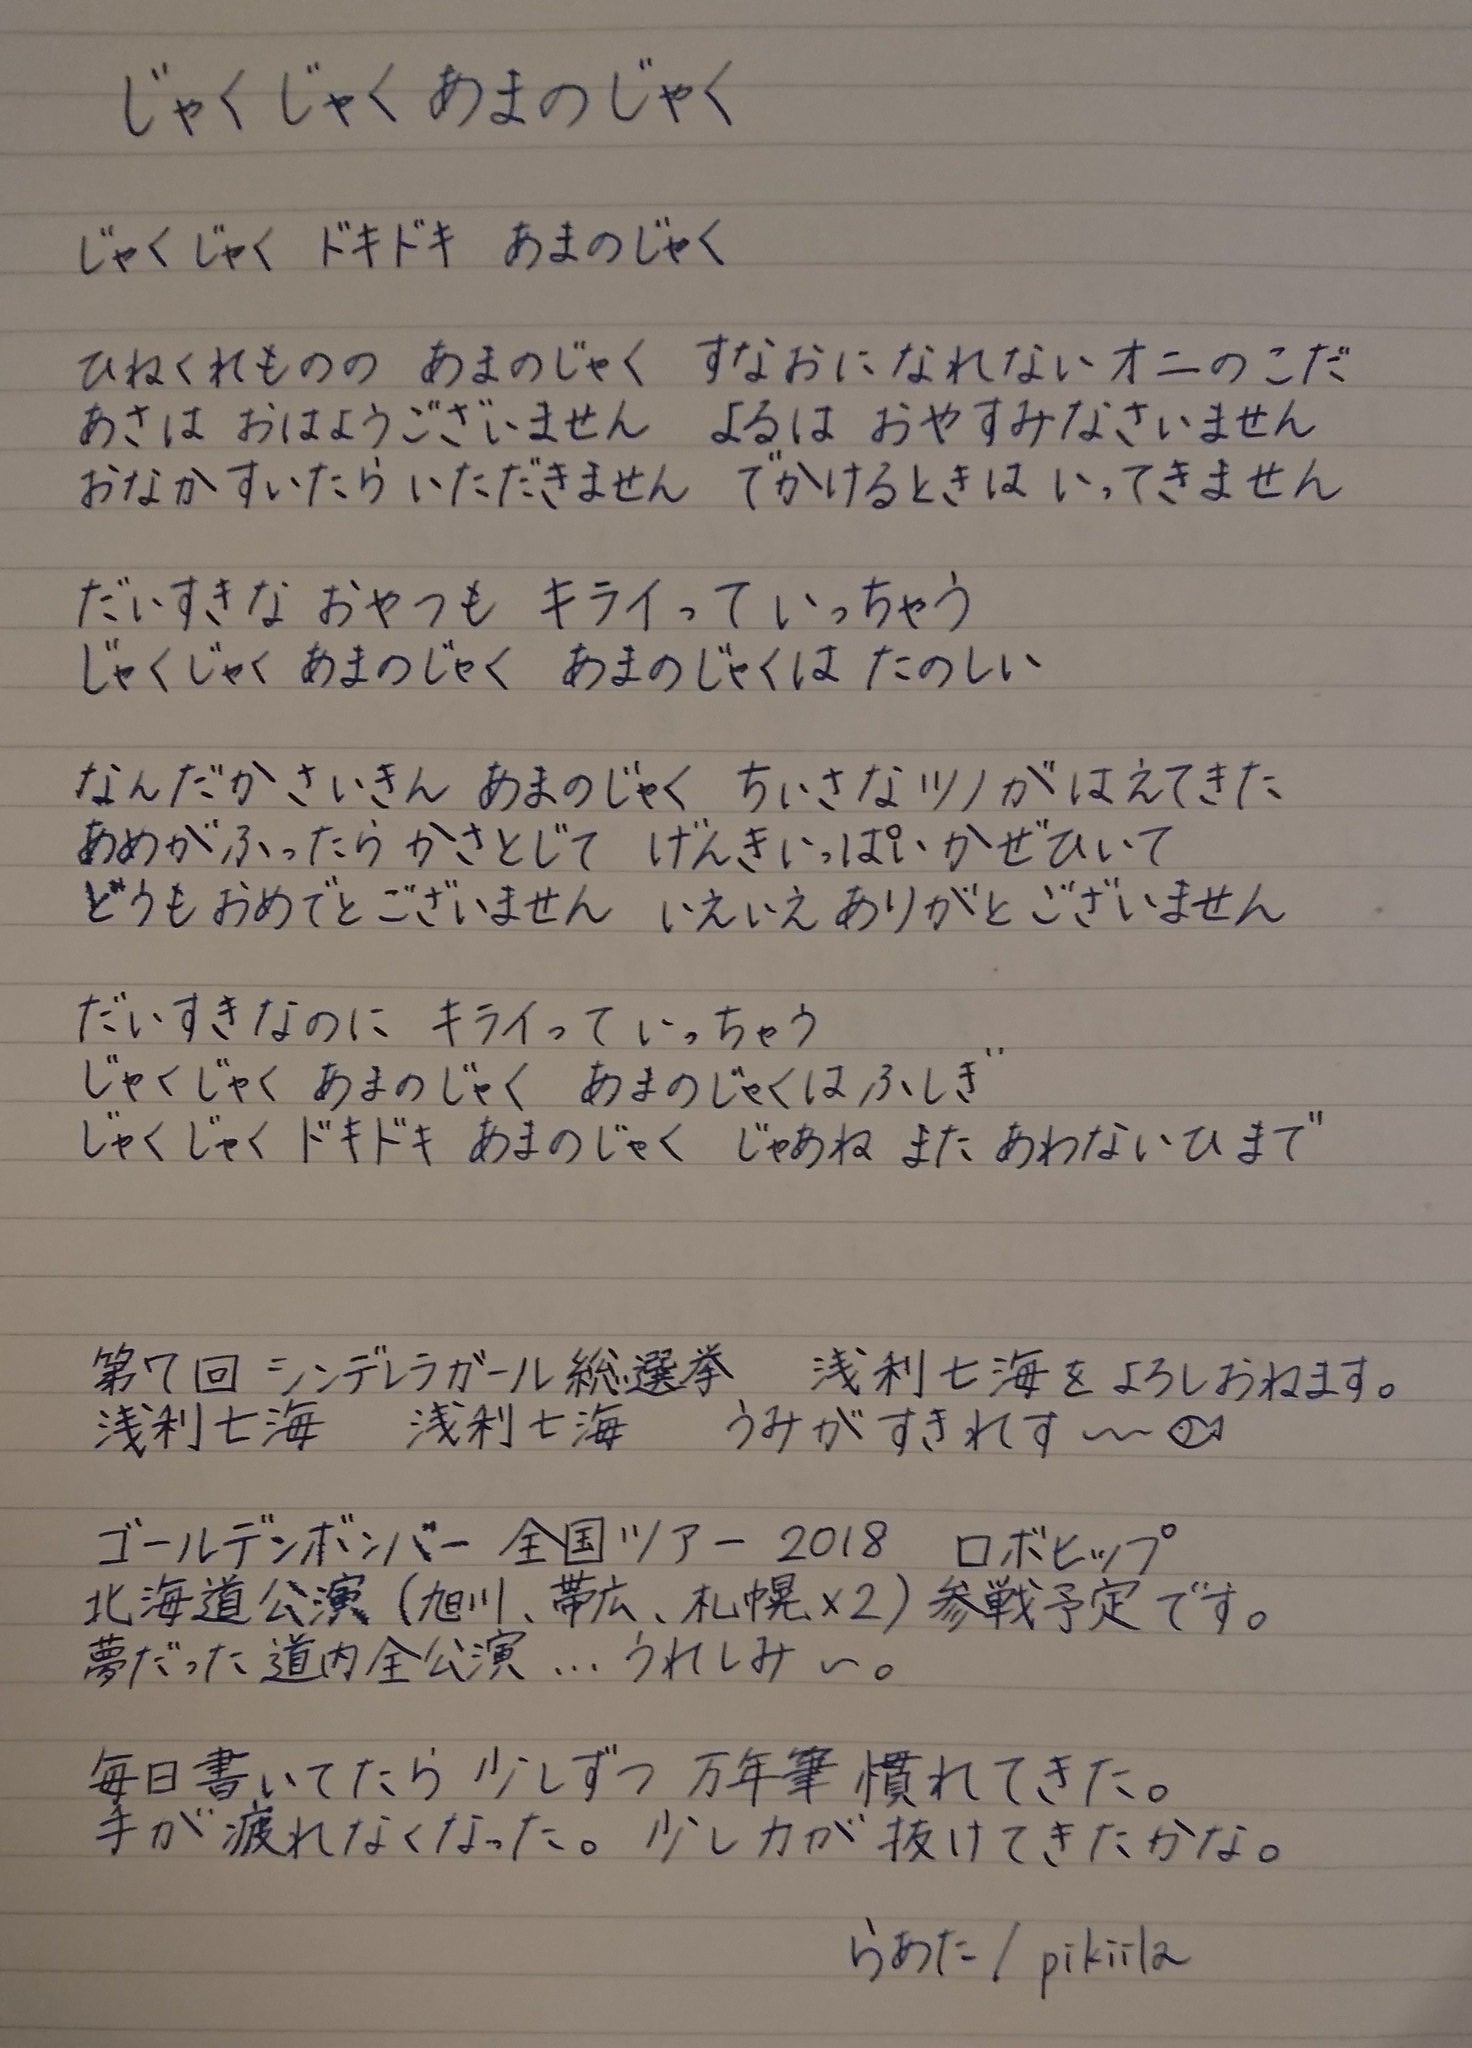 じゃくじゃく あまのじゃく
じゃくじゃく ドキドキ あまのじゃく
ひねくれものの あまのじゃく すなおになれないオニのこだ
あさは おはようございません よるは おやすみなさいません
おなかすいたら いただきません でかけるときは いってきません
だいすきな おやつも キライって いっちゃう
じゃくじゃく あまのじゃく あまのじゃくは たのしい
なんだか さいきん あまのじゃく ちいさなツノが はえてきた
あめが ふったら かさとじて げんきいっぱい かぜひいて
どうも おめでとございません いえいえ ありがと ございません
だいすきなのに キライって いっちゃう
じゃくじゃく あまのじゃく あまのじゃくは ふしぎ
じゃくじゃく ドキドキ あまのじゃく じゃあね また あわないひまで
第7回 シンデレラガール総選挙 浅利七海を よろしおねます。
浅利七海 浅利七海 うみがすきれす〜〜
ゴールデンボンバー 全国ツアー 2018 ロボヒップ
北海道公演(旭川、帯広、札幌×2)参戦予定です。
夢だった 道内全公演…うれしみ〜。
毎日書いてたら 少しずつ 万年筆 慣れてきた。
手が 疲れなくなった。少し力が 抜けてきたかな。
らあた/pikiila